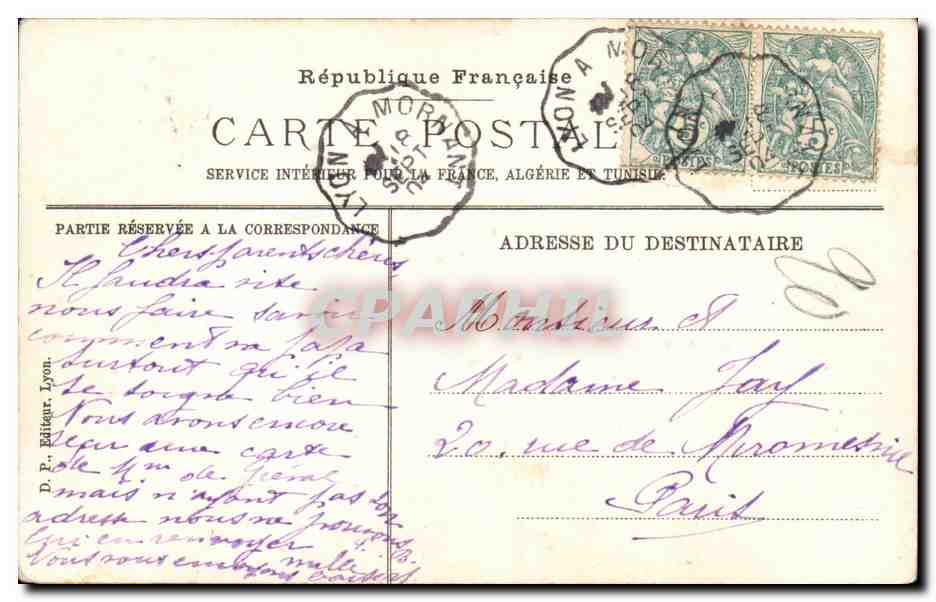 République Française
CARTE POSTALE
SERVICE INTÉRIEUR POUR LA FRANCE, ALGÉRIE ET TUNISIE
LYON A MORNANT
1 R
SEPT
04
LYON A MOR
5c
POSTES
5c
POSTES
PARTIE RÉSERVÉE A LA CORRESPONDANCE
ADRESSE DU DESTINATAIRE
Chers parents chéris,
Il faudra vite
nous faire savoir
comment va papa
surtout qu'il
se soigne bien
Nous avons encore
reçu une carte
de Mme de
mais n'ayant pas son
adresse nous ne pouvons
lui en renvoyer
Nous vous envoyons mille baisers
Monsieur et
Madame Jay
20. rue de Miromesnil
Paris
D. P., Editeur, Lyon.
CPAPHIL